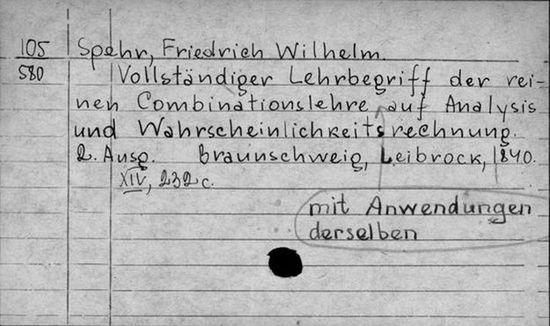 105
580
Spehr, Friedrich Wilhelm.
Vollständiger Lehrbegriff der rei-
nen Combinationslehre auf Analysis
und Wahrscheinlichkeitsrechnung.
2. Ausg. Braunschweig, Leibrock, 1840.
XIV, 232 c.
mit Anwendungen
derselben